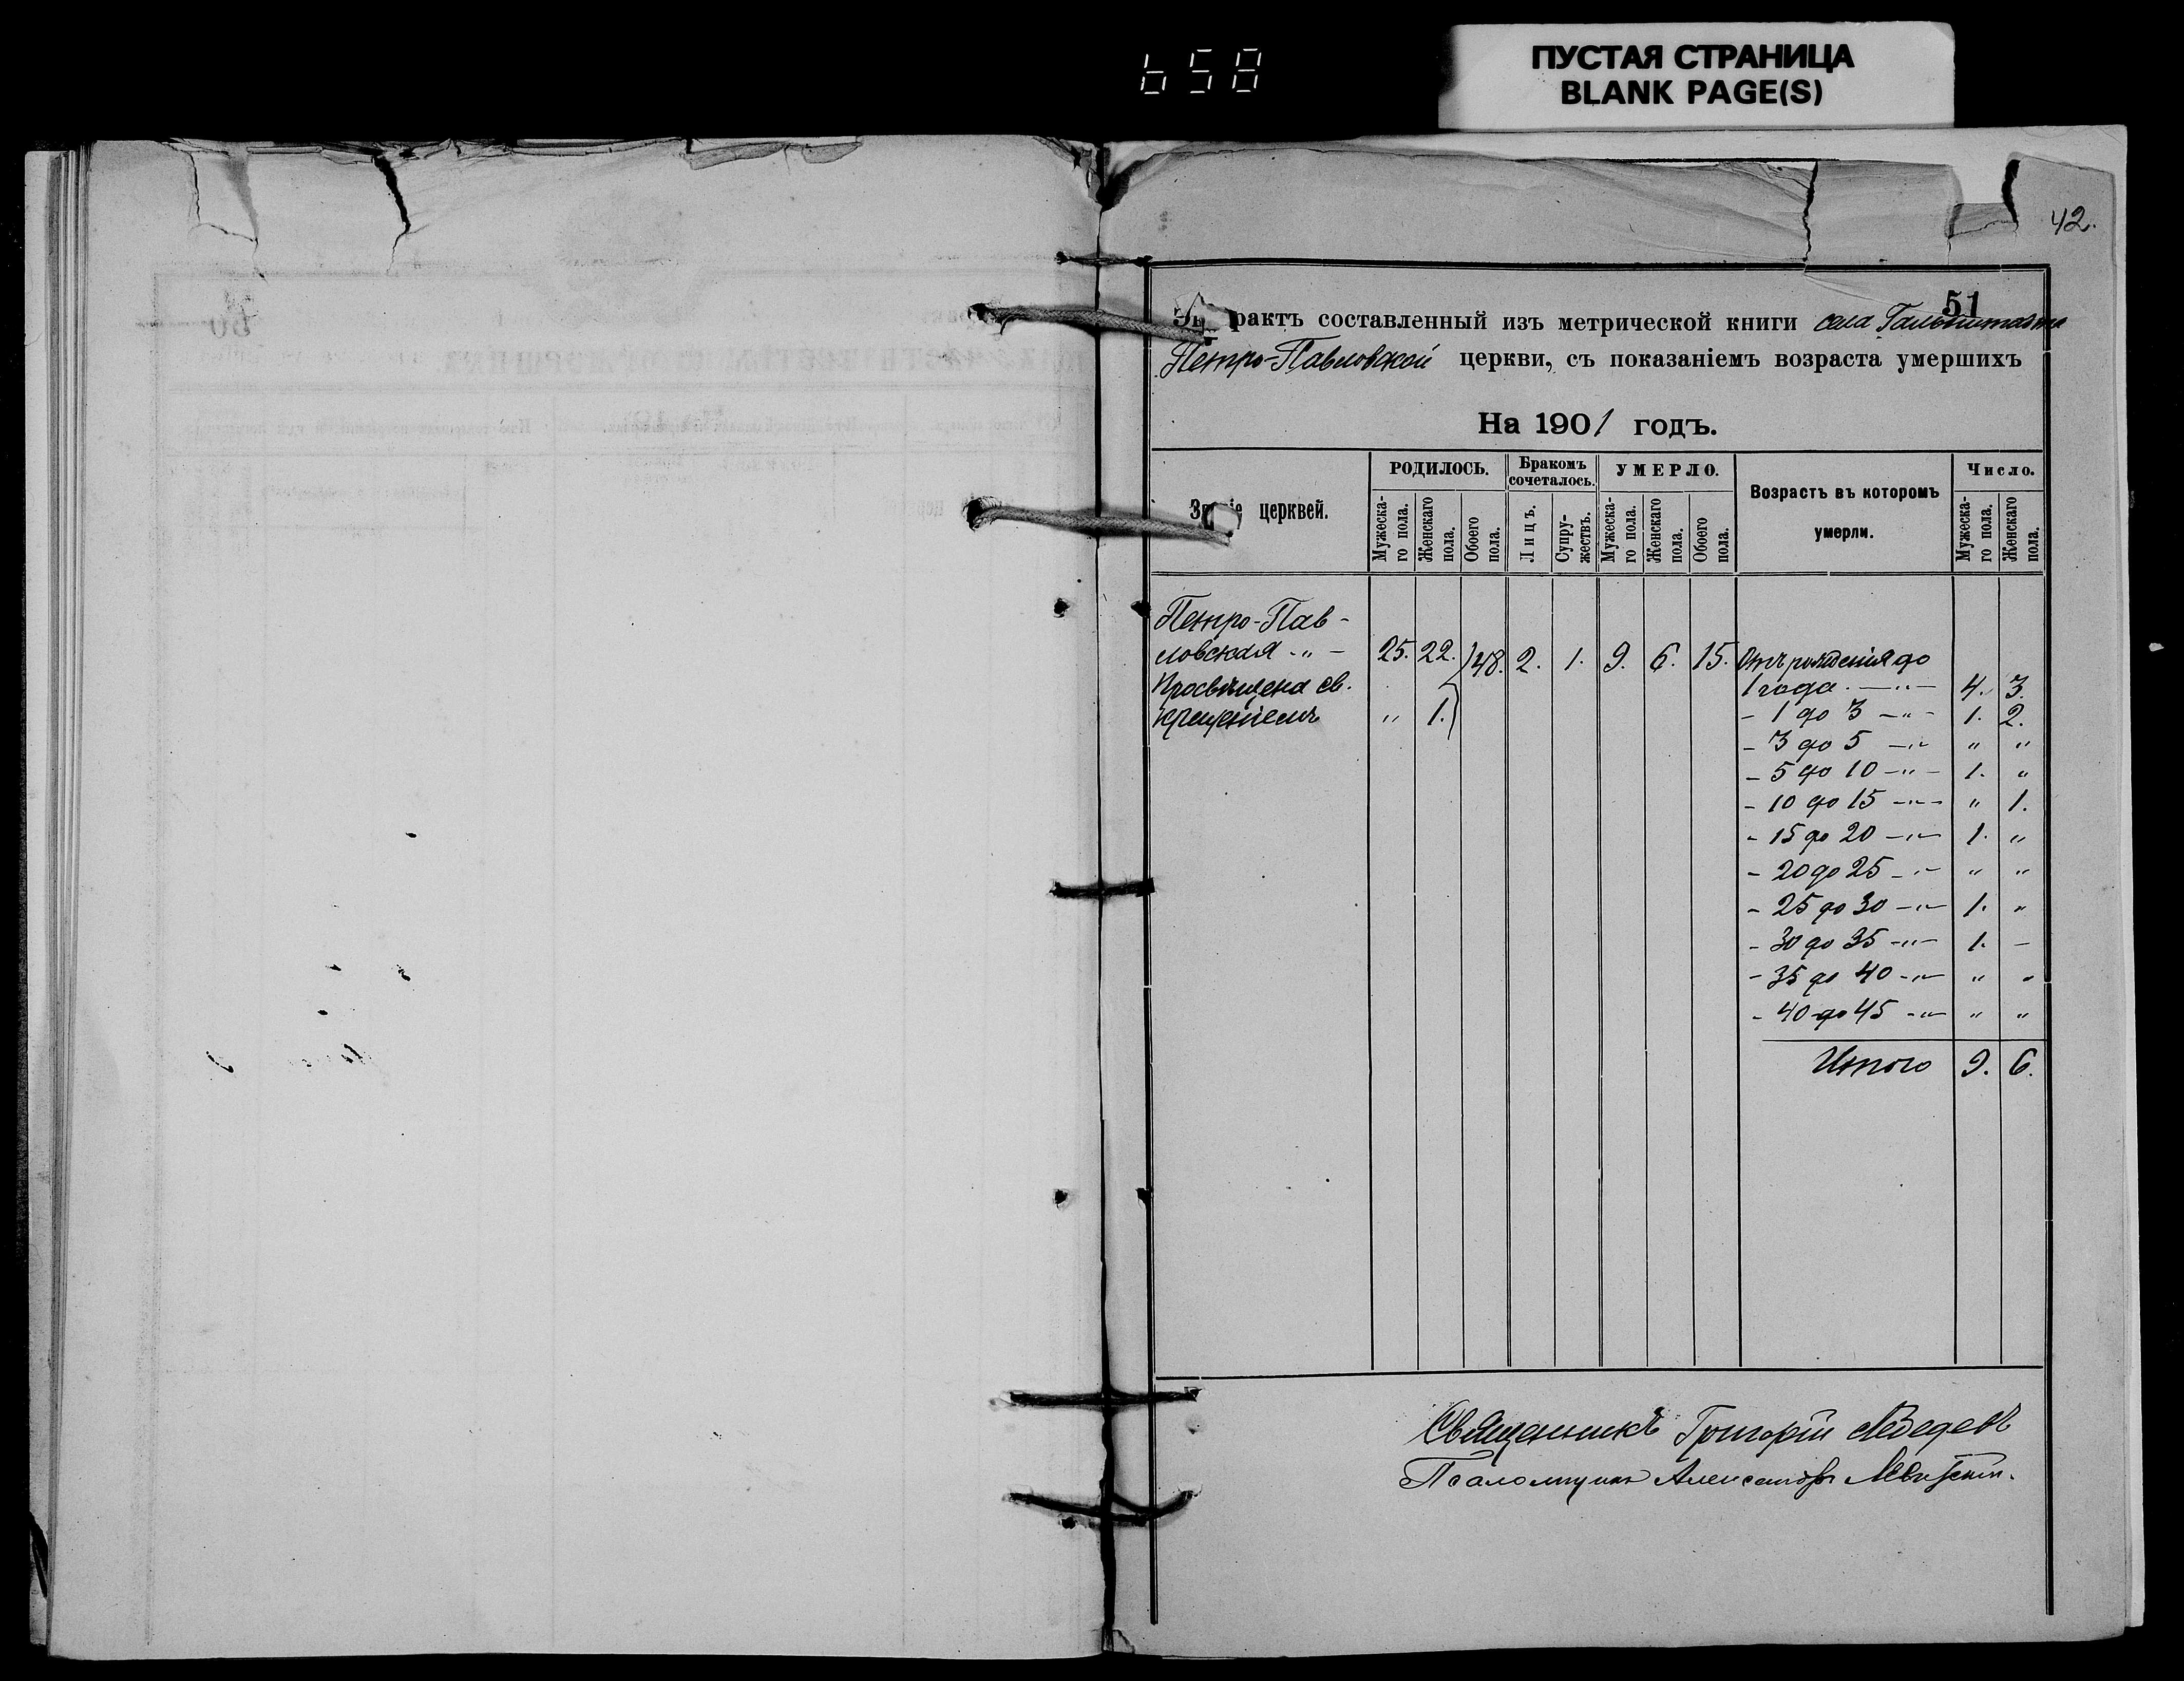 658
ПУСТАЯ СТРАНИЦА
BLANK PAGE(S)
42.
51
рактъ составленный изъ метрической книги села
Петро-Павловской церкви, съ показаніемъ возраста умершихъ
На 1901 годъ.
церквей.
РОДИЛОСЬ.
Бракомъ сочеталось.
УМЕРЛО.
Возрастъ въ которомъ умерли.
Число.
Мужеска-го пола.
Женскаго пола.
Обоего пола.
Лицъ.
Супру-жествъ.
Мужеска-го пола.
Женскаго пола.
Обоего пола.
Мужеска-го пола.
Женскаго пола.
Петро-Пав-
ловская -"- 25. 22. 48. 2. 1. 9. 6. 15. Отъ рожденія до
Просвѣщена св. 1 года -"- 4. 3.
крещеніемъ " 1. - 1 до 3 -"- 1. 2.
- 3 до 5 -"- " "
- 5 до 10 -"- 1. "
- 10 до 15 -"- " 1.
- 15 до 20 -"- 1. "
- 20 до 25 -"- " "
- 25 до 30 -"- 1. "
- 30 до 35 -"- 1. -
- 35 до 40 -"- " "
- 40 до 45 -"- " "
Итого 9. 6.
Священникъ Григорій Лебедевъ
Псаломщикъ Александръ